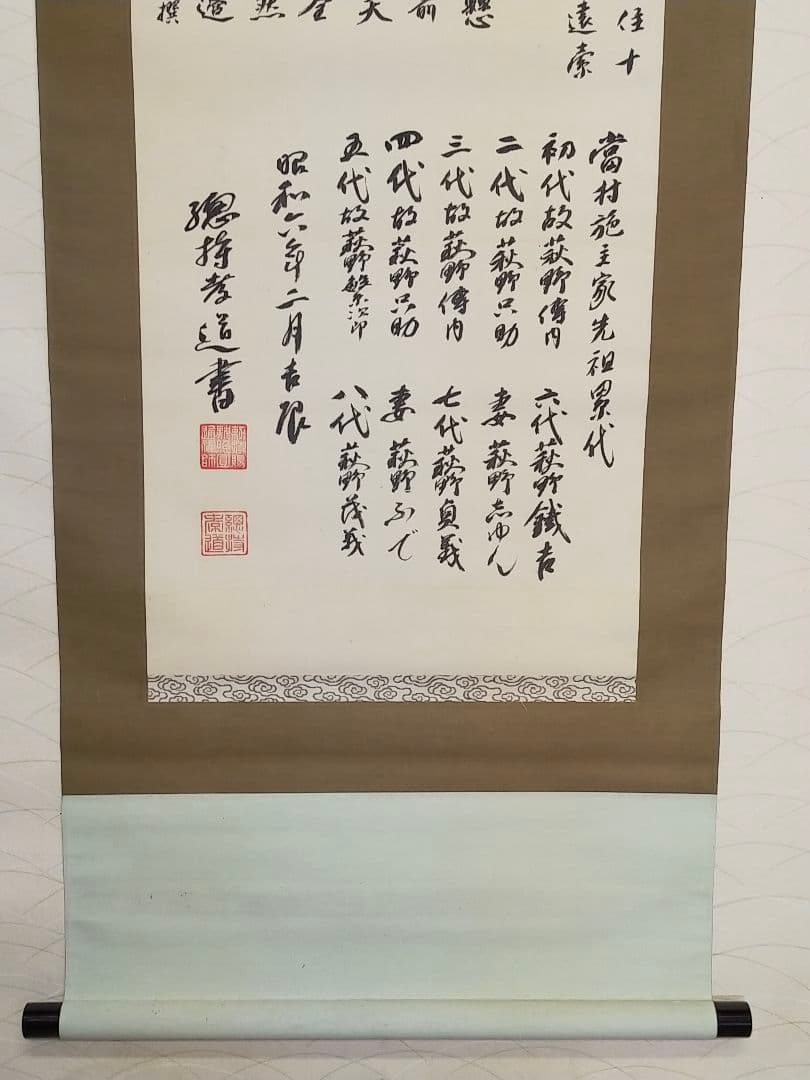 住十
遠索
懸
前
天
全
然
造
撰
當村施主家先祖累代
初代故萩野傳内
六代萩野鐵吉
二代故萩野只助
妻萩野志ゆん
三代故萩野傳内
七代萩野貞義
四代故萩野只助
妻萩野ふで
五代故萩野繁次郎
八代萩野茂義
昭和六年二月吉辰
總持孝道書
總持
孝道